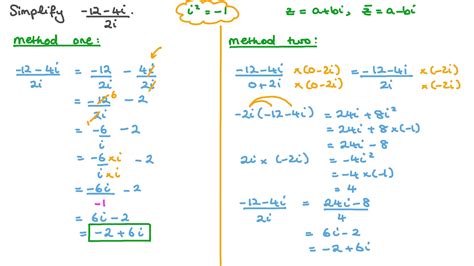 Simplify (-12-4i)/2i.
i² = -1
z = a+bi, z̄ = a-bi
method one:
(-12-4i)/2i = -12/2i - 4i/2i
= -12/2i - 2
6
1
= -6/i - 2
= (-6×i)/(i×i) - 2
= -6i/-1 - 2
= 6i - 2
= -2 + 6i
method two:
(-12-4i)/(0+2i) ×(0-2i)/×(0-2i) = (-12-4i)/2i ×(-2i)/×(-2i)
-2i(-12-4i) = 24i + 8i²
= 24i + 8×(-1)
= 24i - 8
2i × (-2i) = -4i²
= -4×(-1)
= 4
(-12-4i)/2i = (24i-8)/4
= 6i - 2
= -2 + 6i